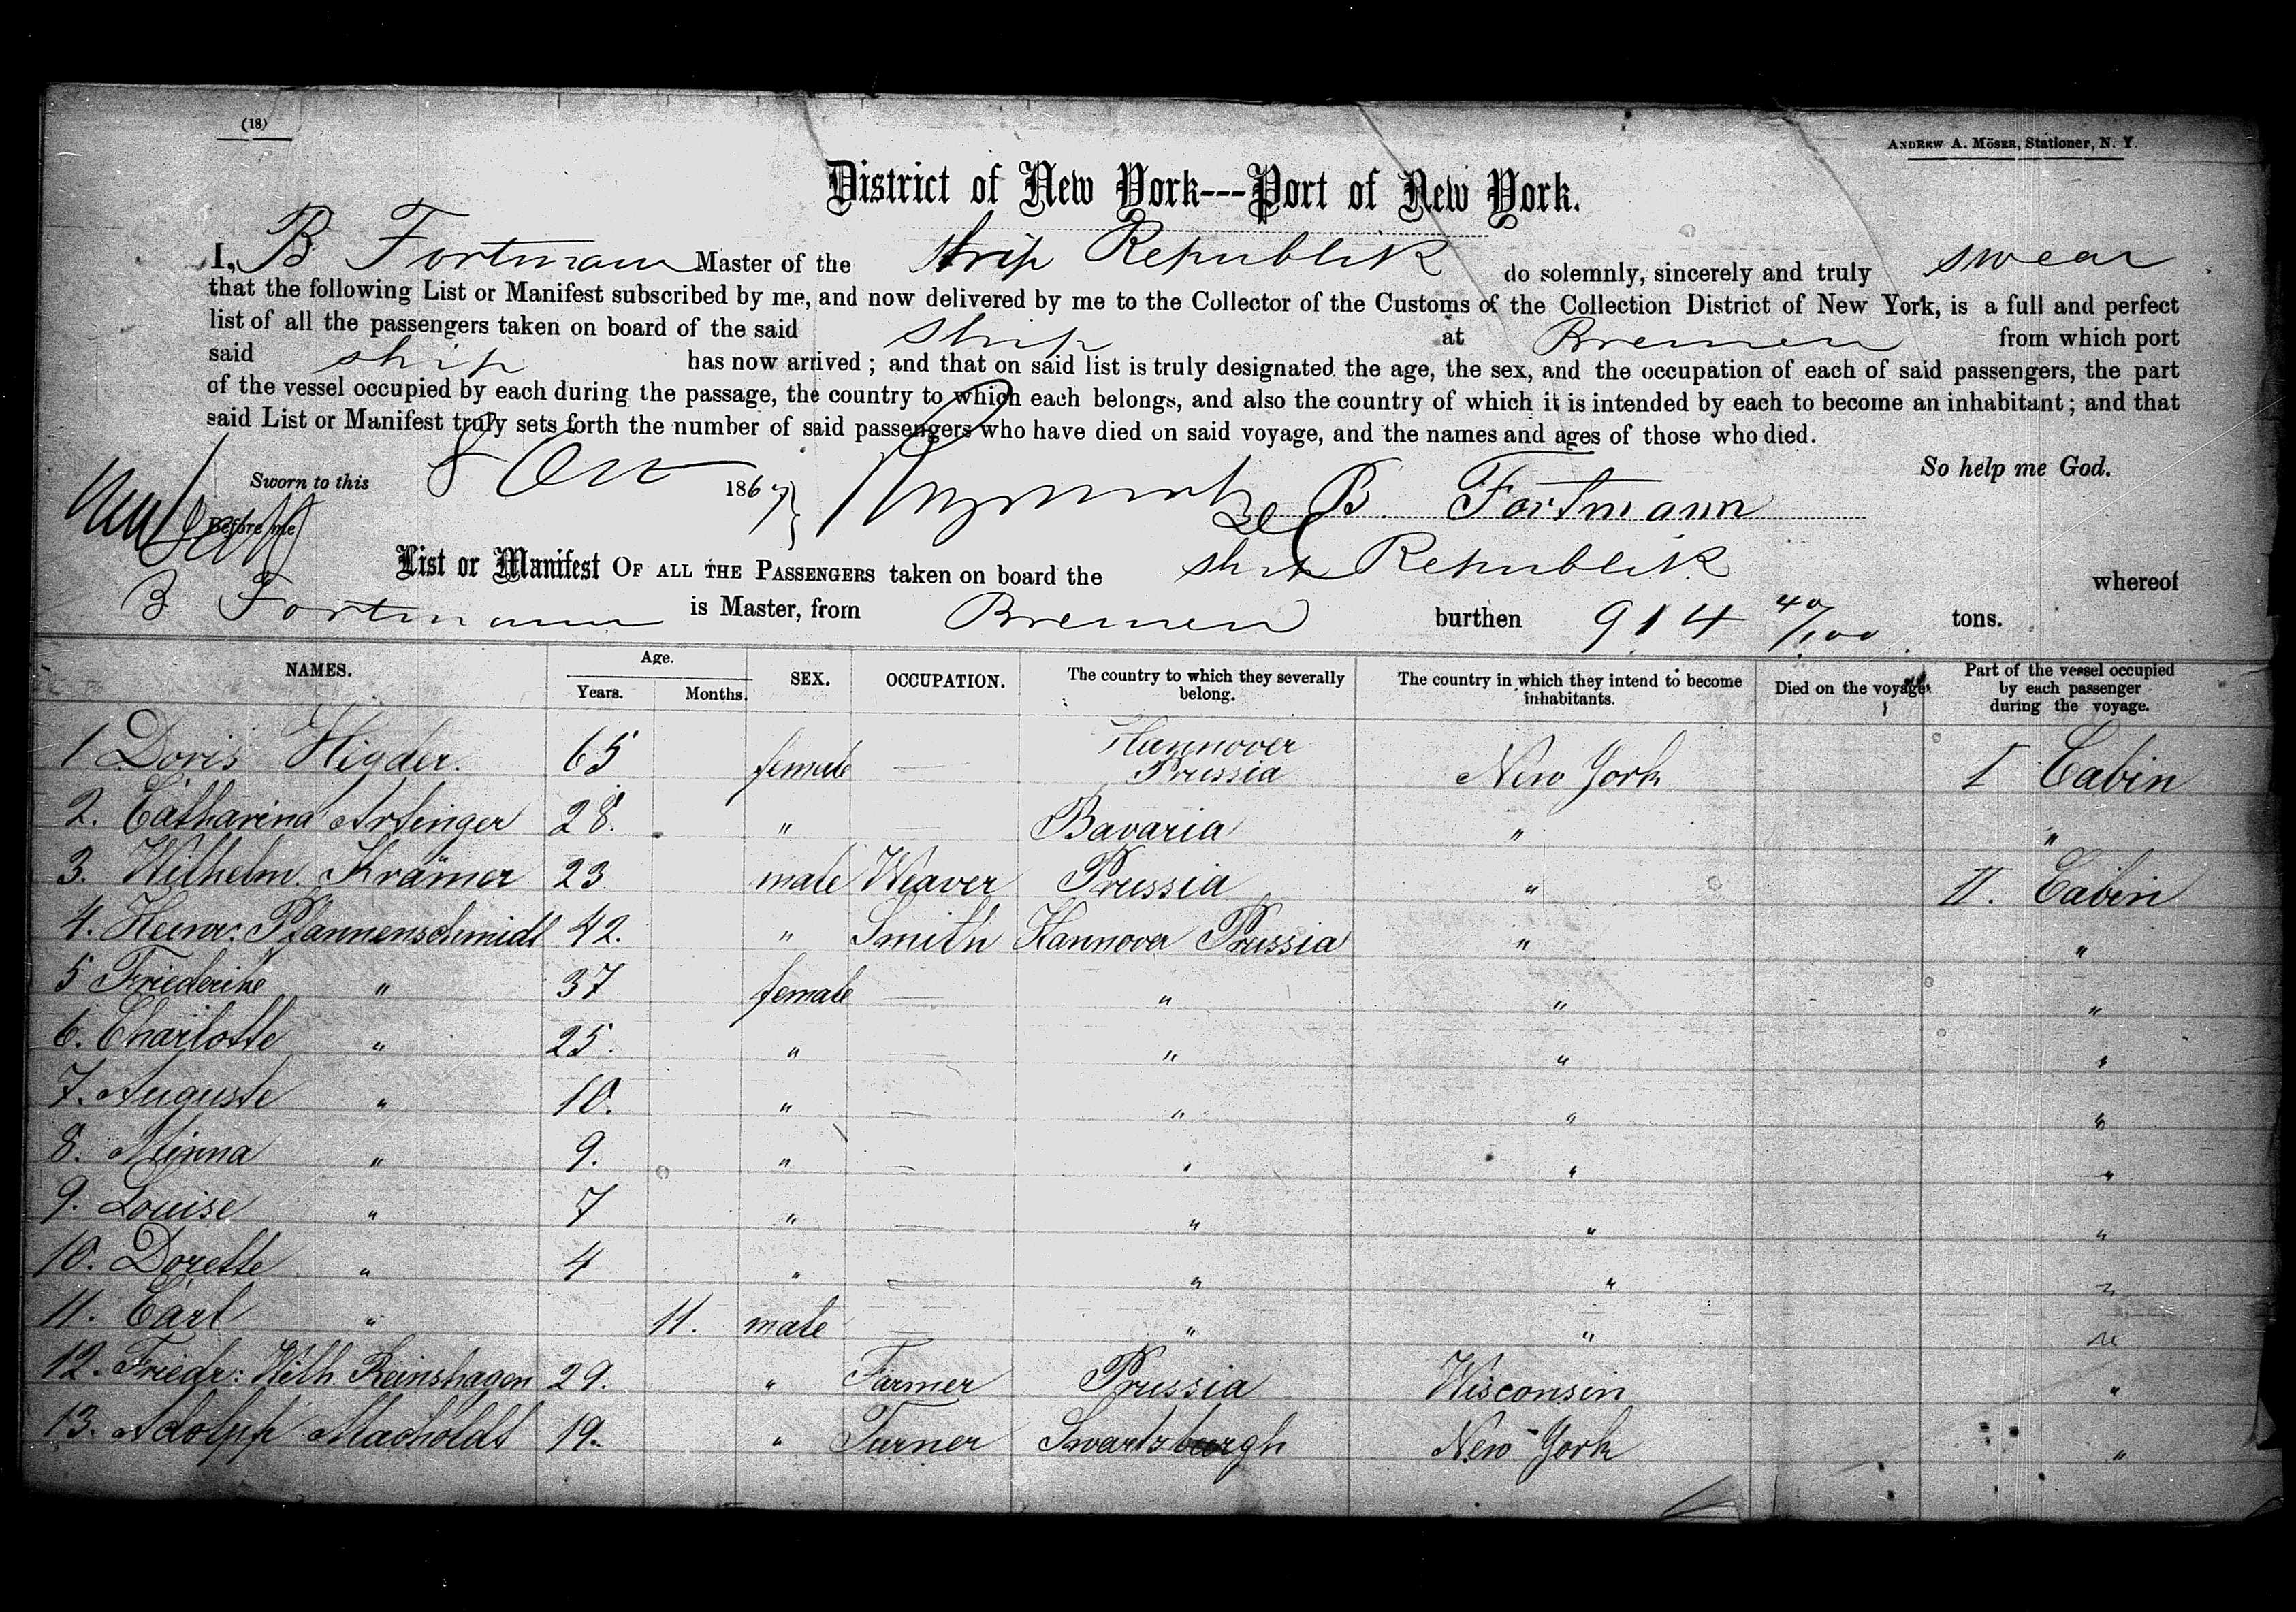 (18)
ANDREW A. MÖSER, Stationer, N. Y.
District of New York---Port of New York.
I, B Fortmann Master of the ship Republik do solemnly, sincerely and truly swear
that the following List or Manifest subscribed by me, and now delivered by me to the Collector of the Customs of the Collection District of New York, is a full and perfect
list of all the passengers taken on board of the said ship at Bremen from which port
said ship has now arrived; and that on said list is truly designated the age, the sex, and the occupation of each of said passengers, the part
of the vessel occupied by each during the passage, the country to which each belongs, and also the country of which it is intended by each to become an inhabitant; and that
said List or Manifest truly sets forth the number of said passengers who have died on said voyage, and the names and ages of those who died.
So help me God.
Sworn to this 8 Oct 1867 B Fortmann
Before me
List or Manifest OF ALL THE PASSENGERS taken on board the ship Republik whereof
B Fortmann is Master, from Bremen burthen 914 40/100 tons.
NAMES. Age. Years. Months. SEX. OCCUPATION. The country to which they severally belong. The country in which they intend to become inhabitants. Died on the voyage. Part of the vessel occupied by each passenger during the voyage.
1 Doris Higder. 65 female — Hannover Prussia New York I Cabin
2. Catharina Arsinger 28. " — Bavaria " "
3. Wilhelm Krämer 23 male Weaver Prussia " II. Cabin
4. Heinr: Pfannenschmidt 42. " Smith Hannover Prussia " "
5 Friederike " 37 female — " " "
6. Charlotte " 25. " — " " "
7. Auguste " 10. " — " " "
8. Minna " 9. " — " " "
9. Louise " 7 " — " " "
10. Dorette " 4 " — " " "
11. Carl " 11. male — " " "
12. Friedr: Wilh Reinshagen 29. " Farmer Prussia Wisconsin "
13. Adolph Macholdt 19. " Turner Swartzburgh New York "